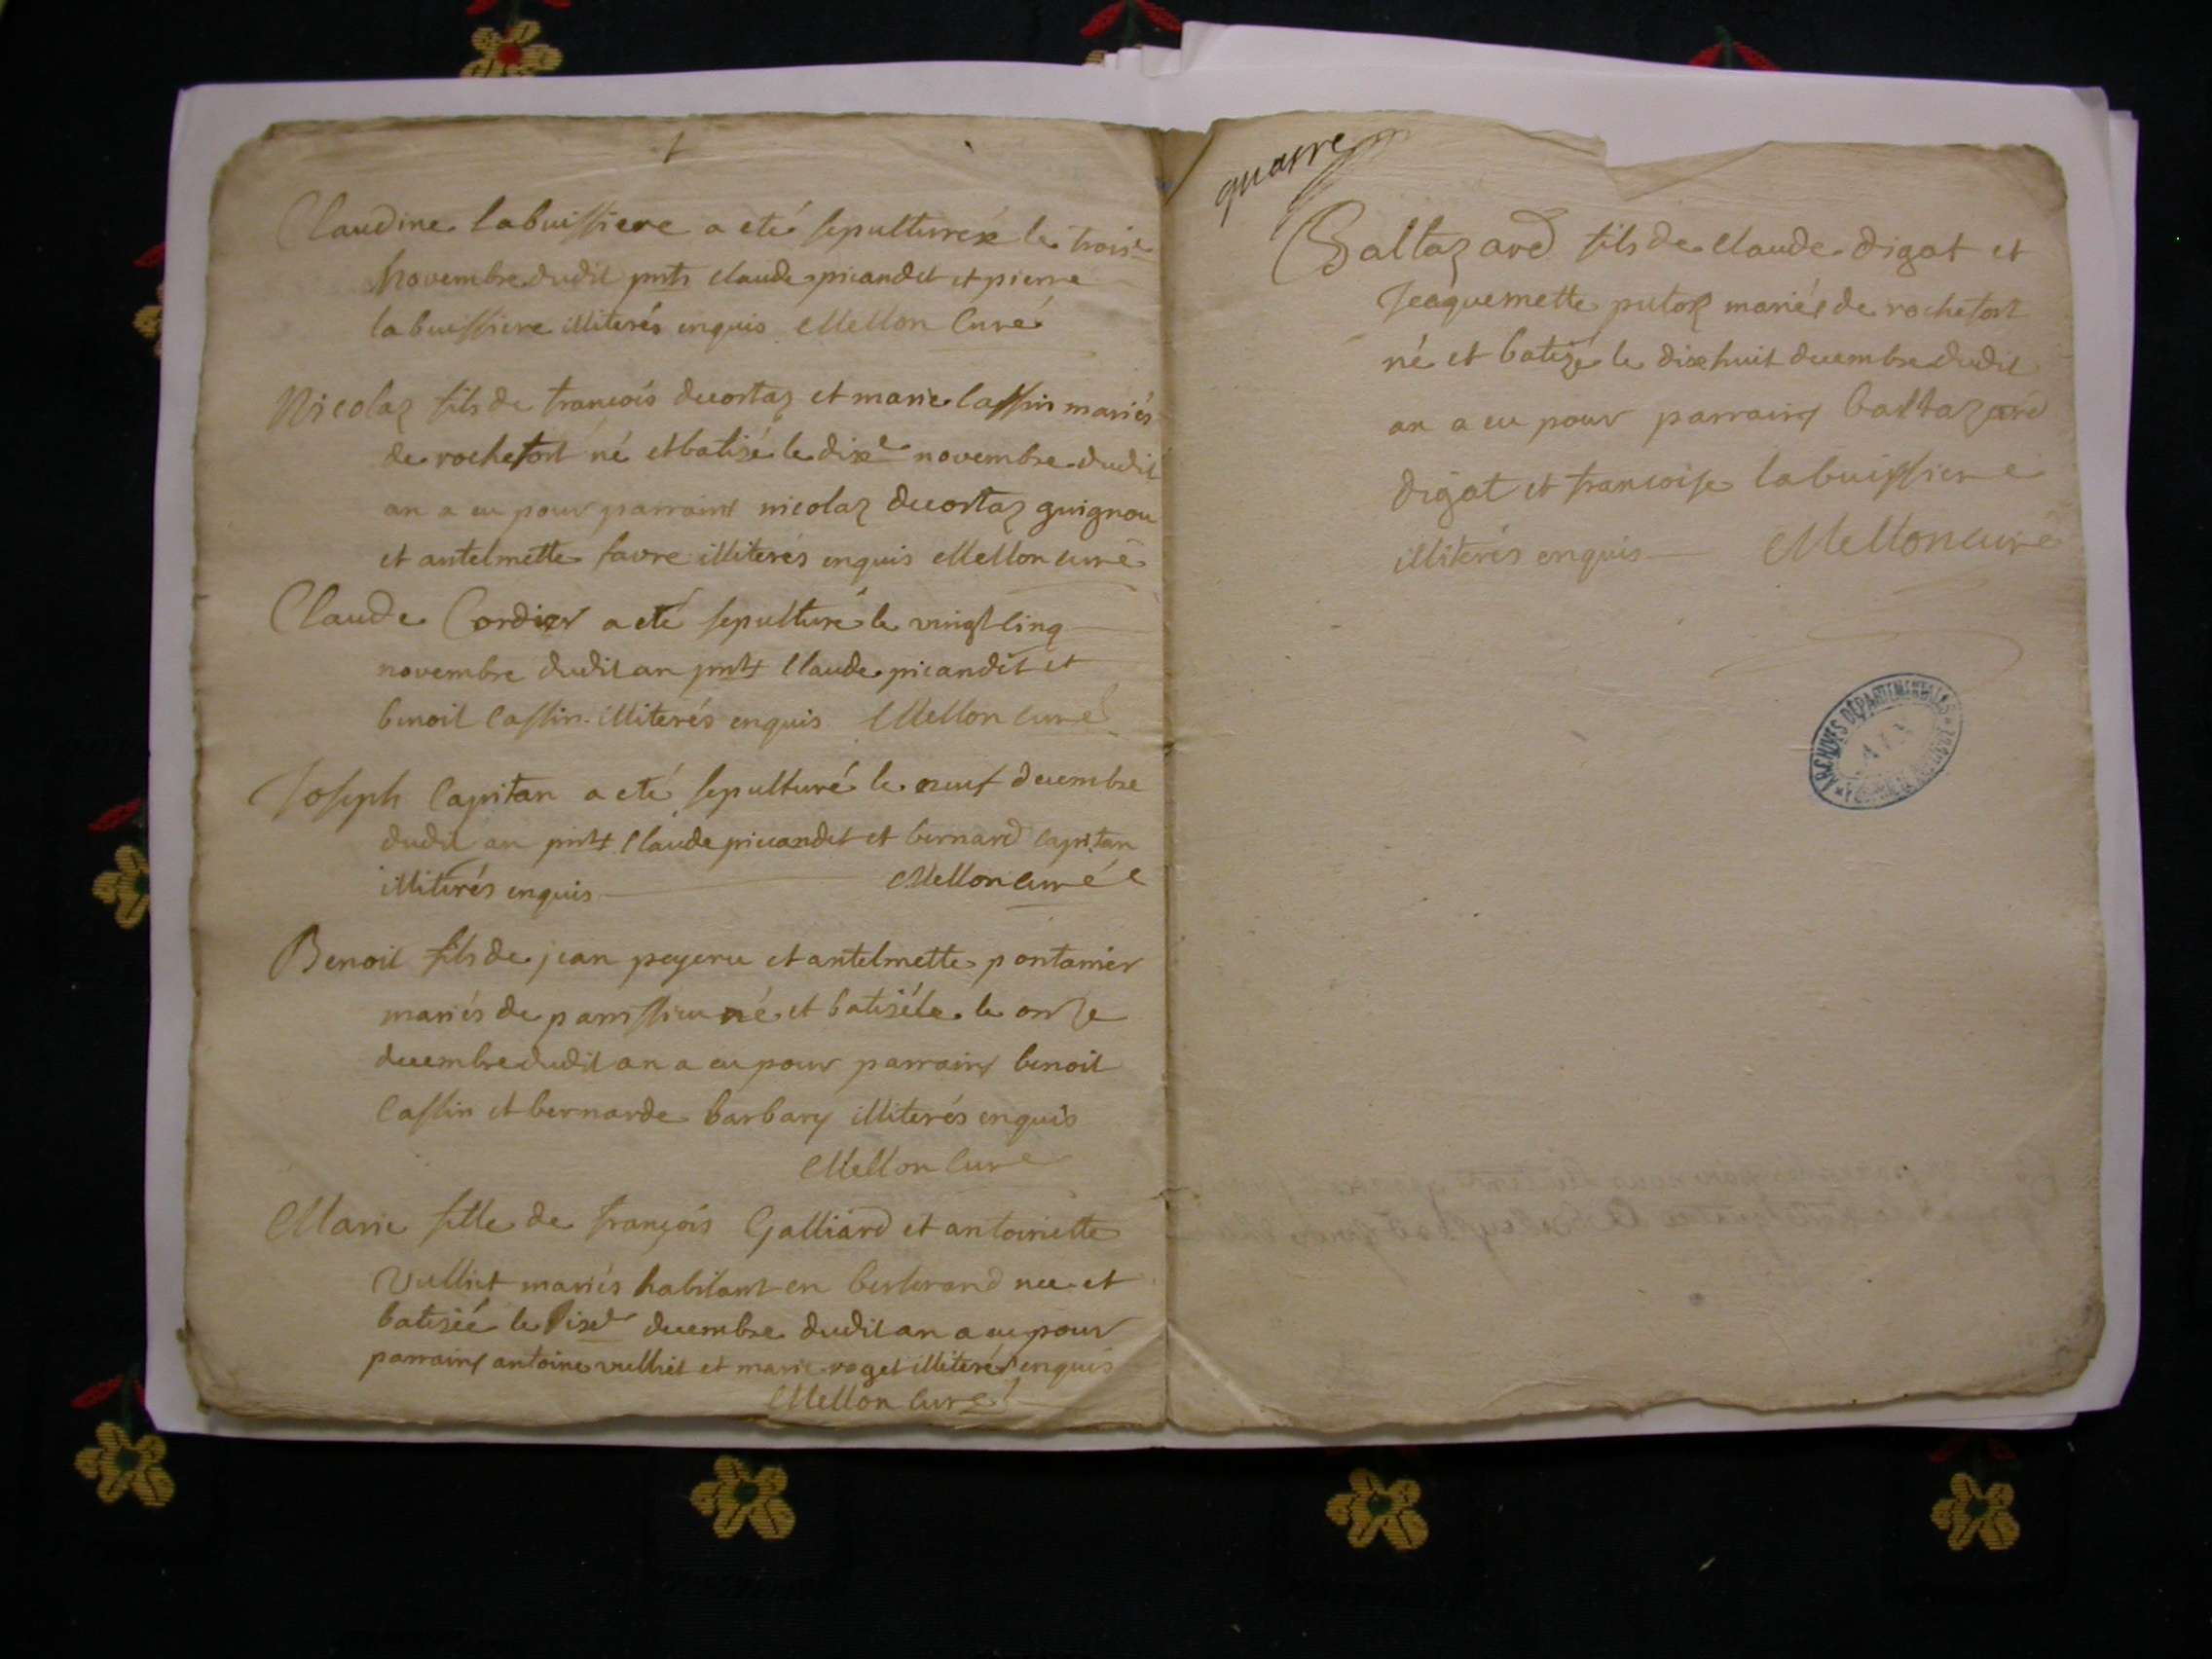 Claudine labuissiere a eté sepulturée le troise
Novembre dudit pnts claude picandet et pierre
labuissiere illiterés enquis Mellon Curé
Nicolaz fils de francois decostaz et marie Cassin mariés
de rochefort né et batisé le dixe novembre dudit
an a eu pour parrains nicolaz decostaz guignou
et antelmette favre illiterés enquis Mellon curé
Claude Cordier a eté sepulturé le vingt Cinq
novembre dudit an pnts Claude picandet et
benoit Cassin illiterés enquis Mellon curé
Joseph Capitan a eté sepulturé le neuf decembre
dudit an pnts Claude picandet et bernard Capitan
illiterés enquis Mellon curé
Benoit fils de jean peyeru et antelmette pontanier
mariés de parrissieu né et batisé le le onze
decembre dudit an a eu pour parrains benoit
Cassin et bernarde barbary illiterés enquis
Mellon Curé
Marie fille de françois Galliard et antoinette
Vulliet mariés habitant en berterand nee et
batisée le dixe decembre dudit an a eu pour
parrains antoine vulliet et marie roget illiterés enquis
Mellon Curé
quatre
Baltazard fils de Claude digat et
Jeaquemette putoz mariés de rochefort
né et batizé le dixhuit decembre dudit
an a eu pour parrains baltazard
digat et francoise labuissiere
illiterés enquis Mellon curé
ARCHIVES DÉPARTEMENTALES
AIN